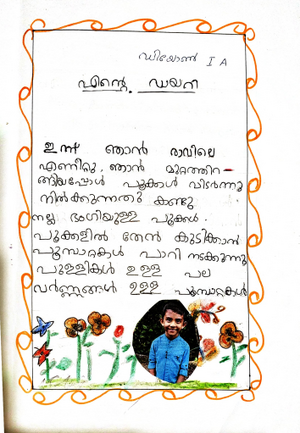 ഡിയോൺ I A
എന്റെ ഡയറി
ഇന്ന് ഞാൻ രാവിലെ
എണീറ്റു. ഞാൻ മുറ്റത്തിറ-
ങ്ങിയപ്പോൾ പൂക്കൾ വിടർന്നു
നിൽക്കുന്നതു കണ്ടു
നല്ല ഭംഗിയുള്ള പൂക്കൾ.
പൂക്കളിൽ തേൻ കുടിക്കാൻ
പൂമ്പാറ്റകൾ പാറി നടക്കുന്നു
പുള്ളികൾ ഉള്ള പല
വർണ്ണങ്ങൾ ഉള്ള പൂമ്പാറ്റകൾ